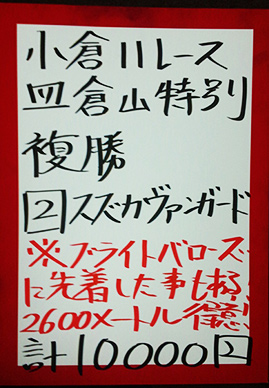 小倉11レース
皿倉山特別
複勝
2 スズカヴァンガード
※ブライトバローズ
に先着した事も有る!
2600メートル得意!
計10000円